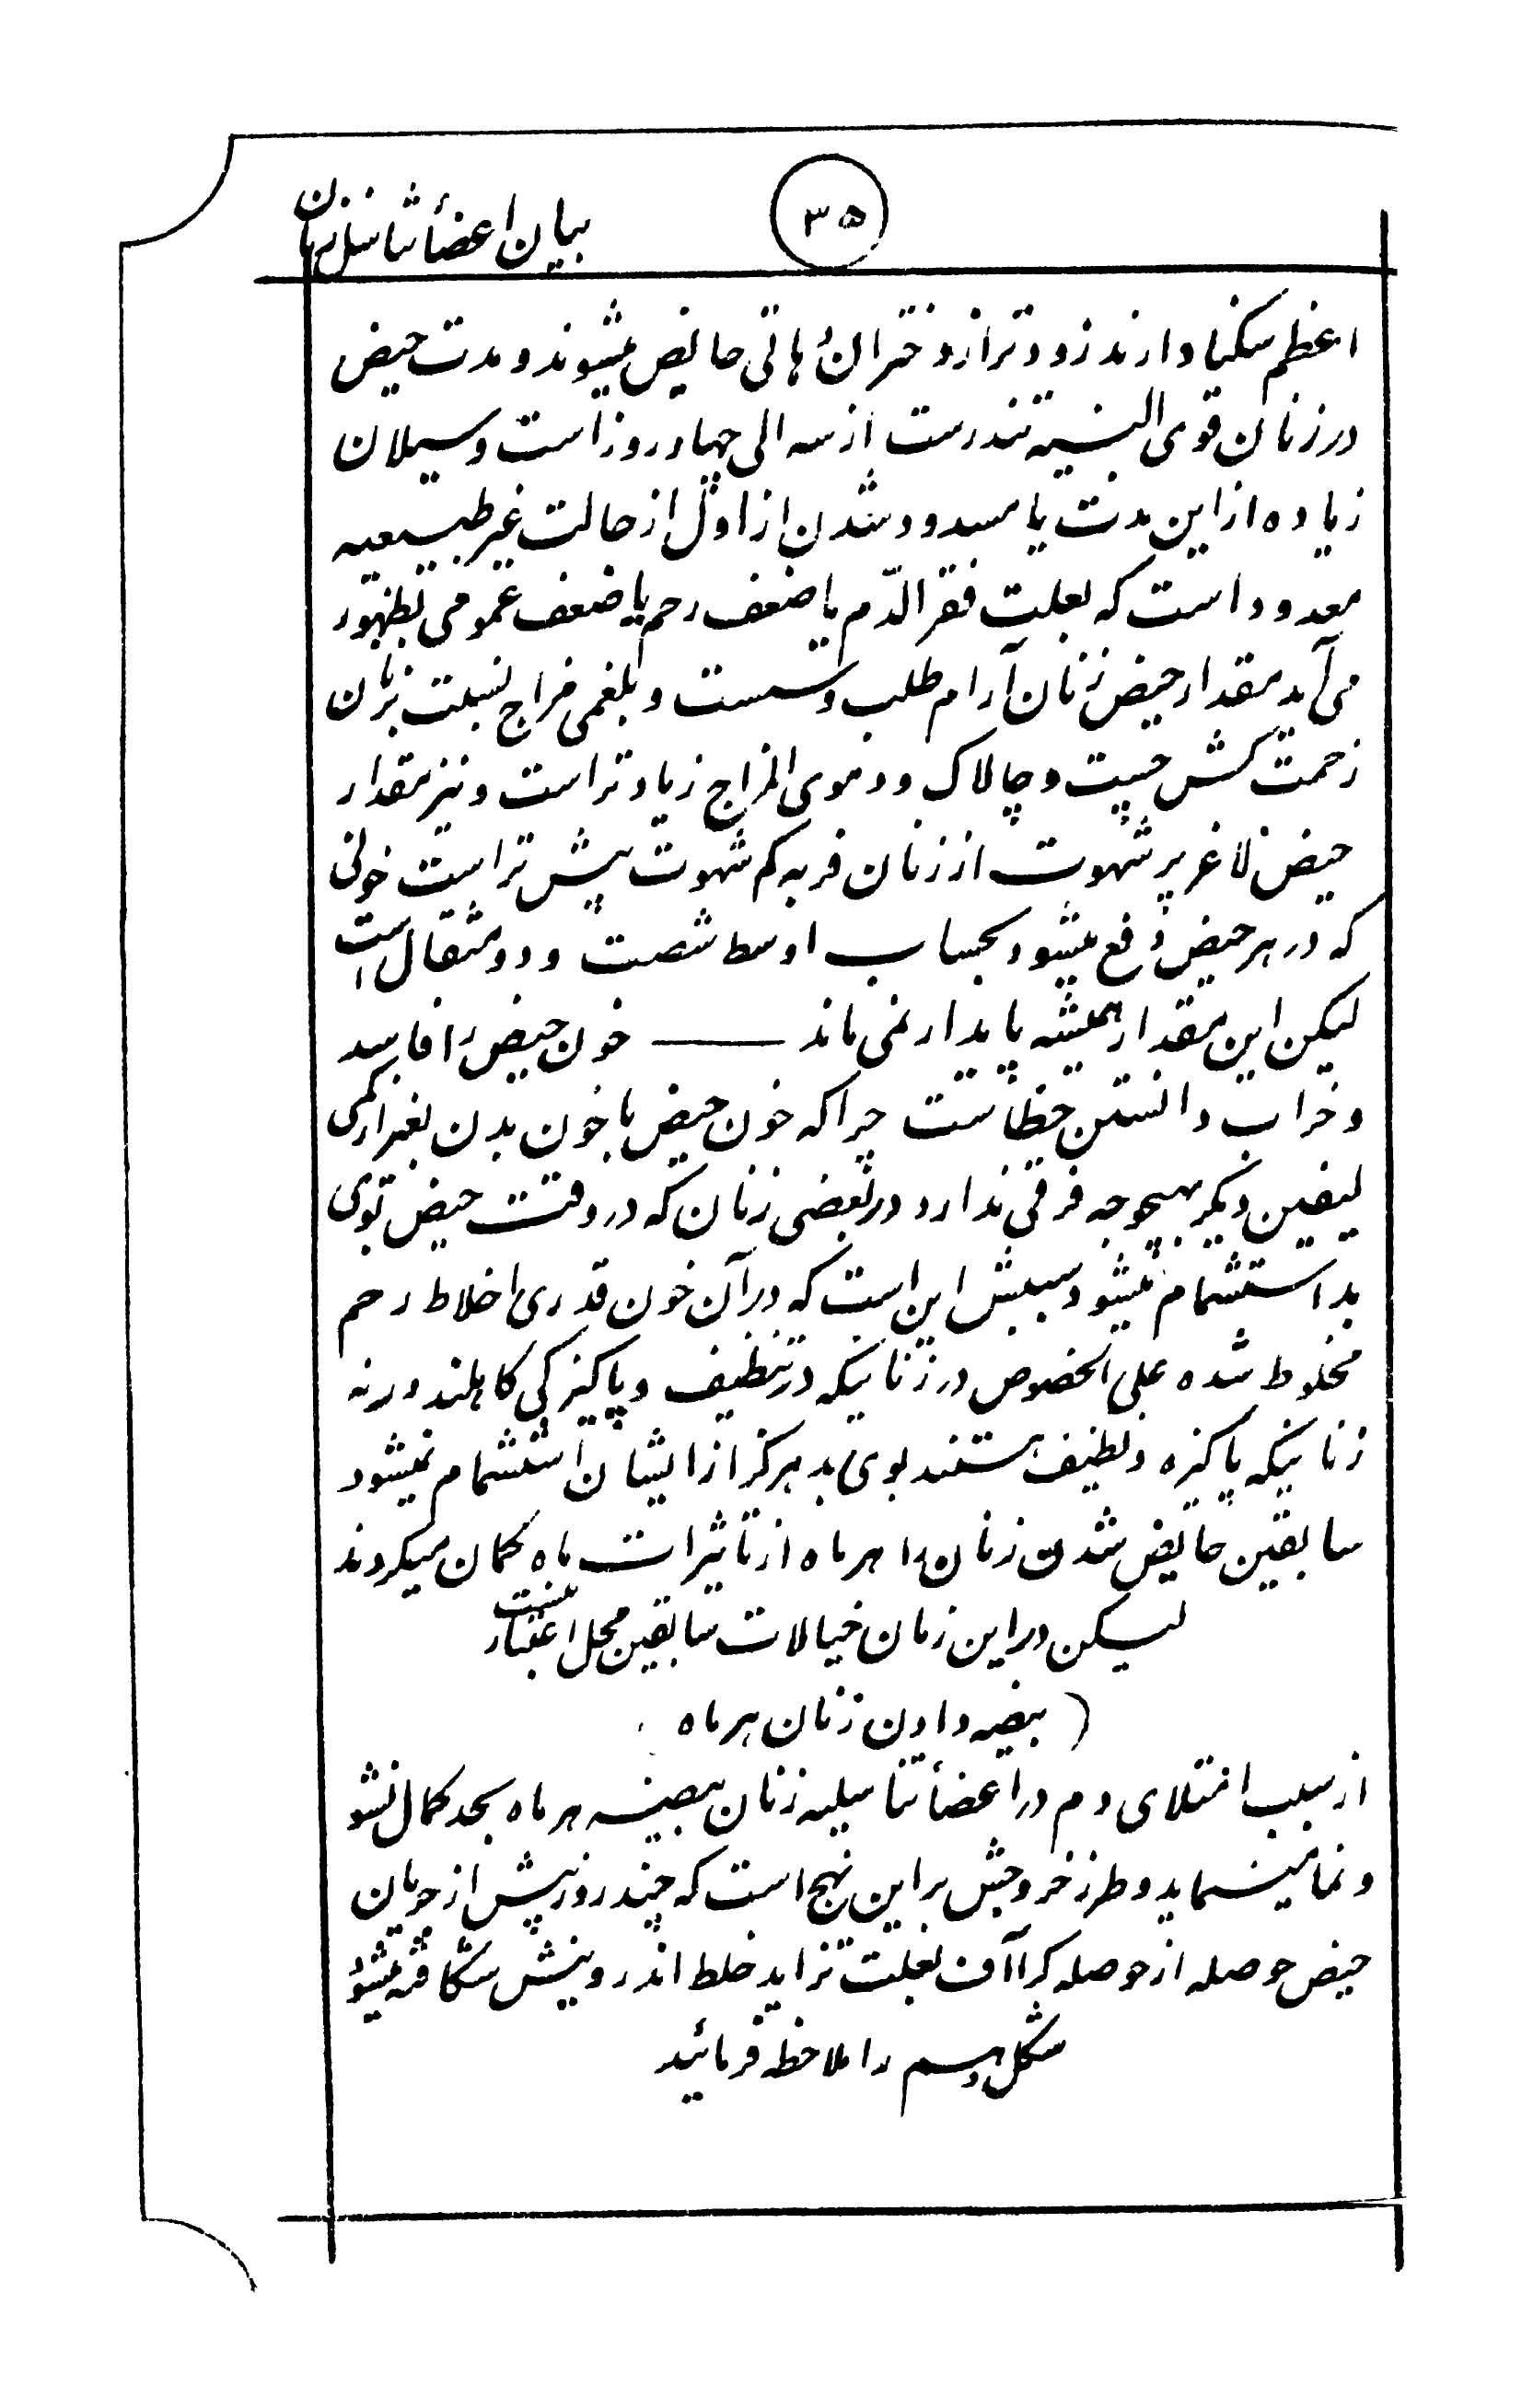 ۳۵
بیان اعضأ تناسل زنان
اعظم سکنا دارند زودتر از دختران دهاتی حایض میشوند و مدت حیض
در زنان قوی البنیه تندرست از سه الی چهار روز است و سیلان
زیاده از این مدت یا مسدود شدن از اوّل از حالت غیر طبیعیه
معدود است که بعلت فقر الدّم یا ضعف رحم یا ضعف عمومی بظهور
می آید مقدار حیض زنان آرام طلب و سست و بلغمی مزاج نسبت بزنان
زحمت کش چست و چالاک و دموی المزاج زیادتر است و نیز مقدار
حیض لاغر پر شهوت از زنان فربه کم شهوت بیش تر است خونی
که در هر حیض دفع میشود بحساب اوسط شصت و دو مثقال است
لیکن این مقدار همیشه پایدار نمی ماند —— خون حیض را فاسد
و خراب دانستن خطاست چرا که خون حیض با خون بدن بغیر از کمی
لیفین دیگر بهیچوجه فرقی ندارد در بعضی زنان که در وقت حیض بوی
بد استشمام میشود سببش این است که در آن خون قدری اخلاط رحم
مخلوط شده علی الخصوص در زنانیکه در تنظیف و پاکیزگی کاهلند ورنه
زنانیکه پاکیزه و لطیف هستند بوی بد هرگز از ایشان استشمام نمیشود
سابقین حایض شدن زنان را هر ماه از تاثیرات ماه گمان میکردند
لیکن در این زمان خیالات سابقین محل اعتبار نیست
( بیضه دادن زنان هر ماه
از سبب امتلای دم در اعضأ تناسلیه زنان بیضه هر ماه بحد کمال نشو
و نما مینماید و طرز خروجش بر این نهج است که چند روز پیش از جریان
حیض حوصله از حوصله گراآف بعلت تزاید خلط اندرونیش شکافته میشود
شکل را ملاحظه فرمائید